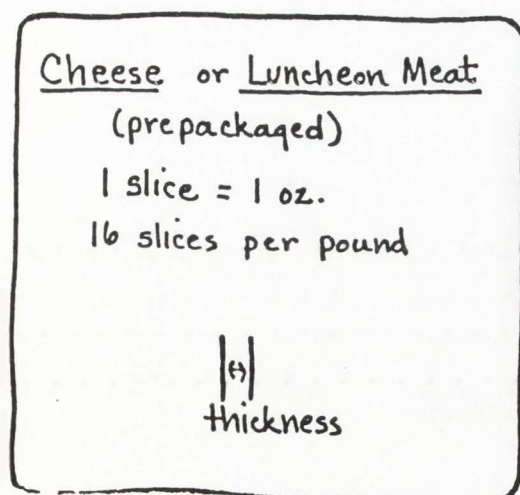 Cheese or Luncheon Meat
(prepackaged)
1 slice = 1 oz.
16 slices per pound
thickness